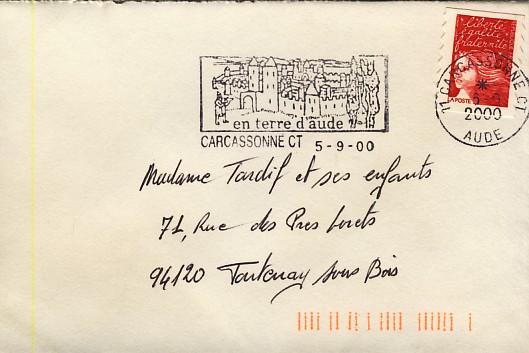 liberté
égalité
fraternité
LA POSTE
11 CARCASSONNE CT
2000
AUDE
en terre d'aude
CARCASSONNE CT 5-9-00
Madame Tardif et ses enfants
71, Rue des Pres
94120 Fontenay sous Bois